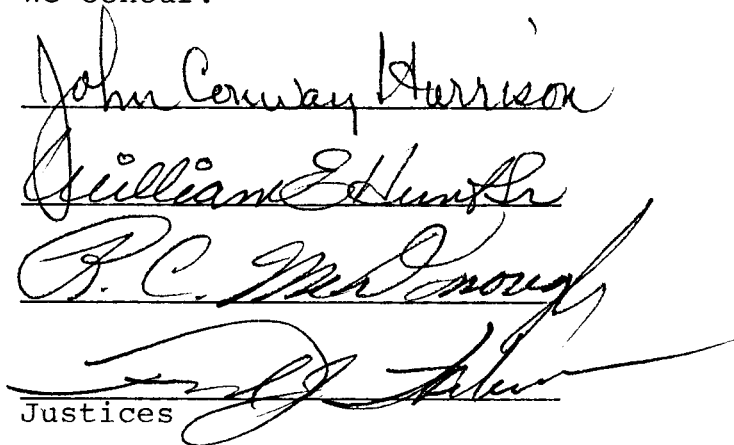 We concur:
John Conway Harrison
William E Hunt Sr
R. C. McDonough
Justices